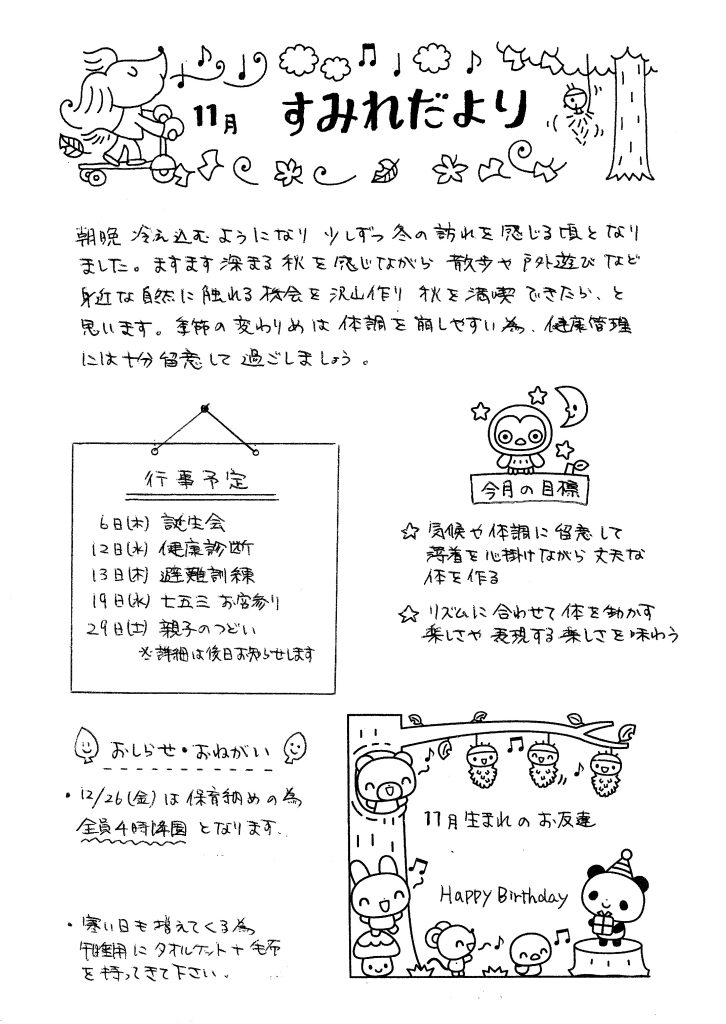 11月 すみれだより
朝晩 冷え込むようになり 少しずつ冬の訪れを感じる頃となり
ました。ますます深まる秋を感じながら 散歩や戸外遊びなど
身近な自然に触れる機会を沢山作り 秋を満喫できたら、と
思います。季節の変わりめは体調を崩しやすい為、健康管理
には十分留意して過ごしましょう。
行事予定
6日(木) 誕生会
12日(水) 健康診断
13日(木) 避難訓練
19日(水) 七五三 お宮参り
29日(土) 親子のつどい
※詳細は後日お知らせします
今月の目標
☆ 気候や体調に留意して
薄着を心掛けながら丈夫な
体を作る
☆ リズムに合わせて体を動かす
楽しさや表現する楽しさを味わう
おしらせ・おねがい
・12/26(金)は保育納めの為
全員4時降園となります。
・寒い日も増えてくる為
午睡用にタオルケット+毛布
を持ってきて下さい。
11月生まれのお友達
Happy Birthday